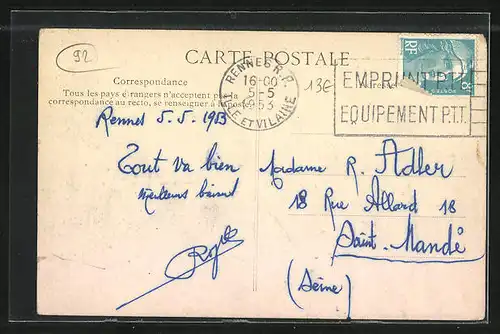 92
CARTE POSTALE
Correspondance
Tous les pays étrangers n'acceptent pas la
correspondance au recto, se renseigner à la poste
RENNES R.P.
16-00
5-5
1953
ILLE ET VILAINE
13€
RF
EMPRUNT P.T.T.
EQUIPEMENT P.T.T.
Rennes 5.5.1953
Tout va bien
Meilleurs
Madame R. Adler
18 Rue Allard 18
Saint-Mandé
(Seine)